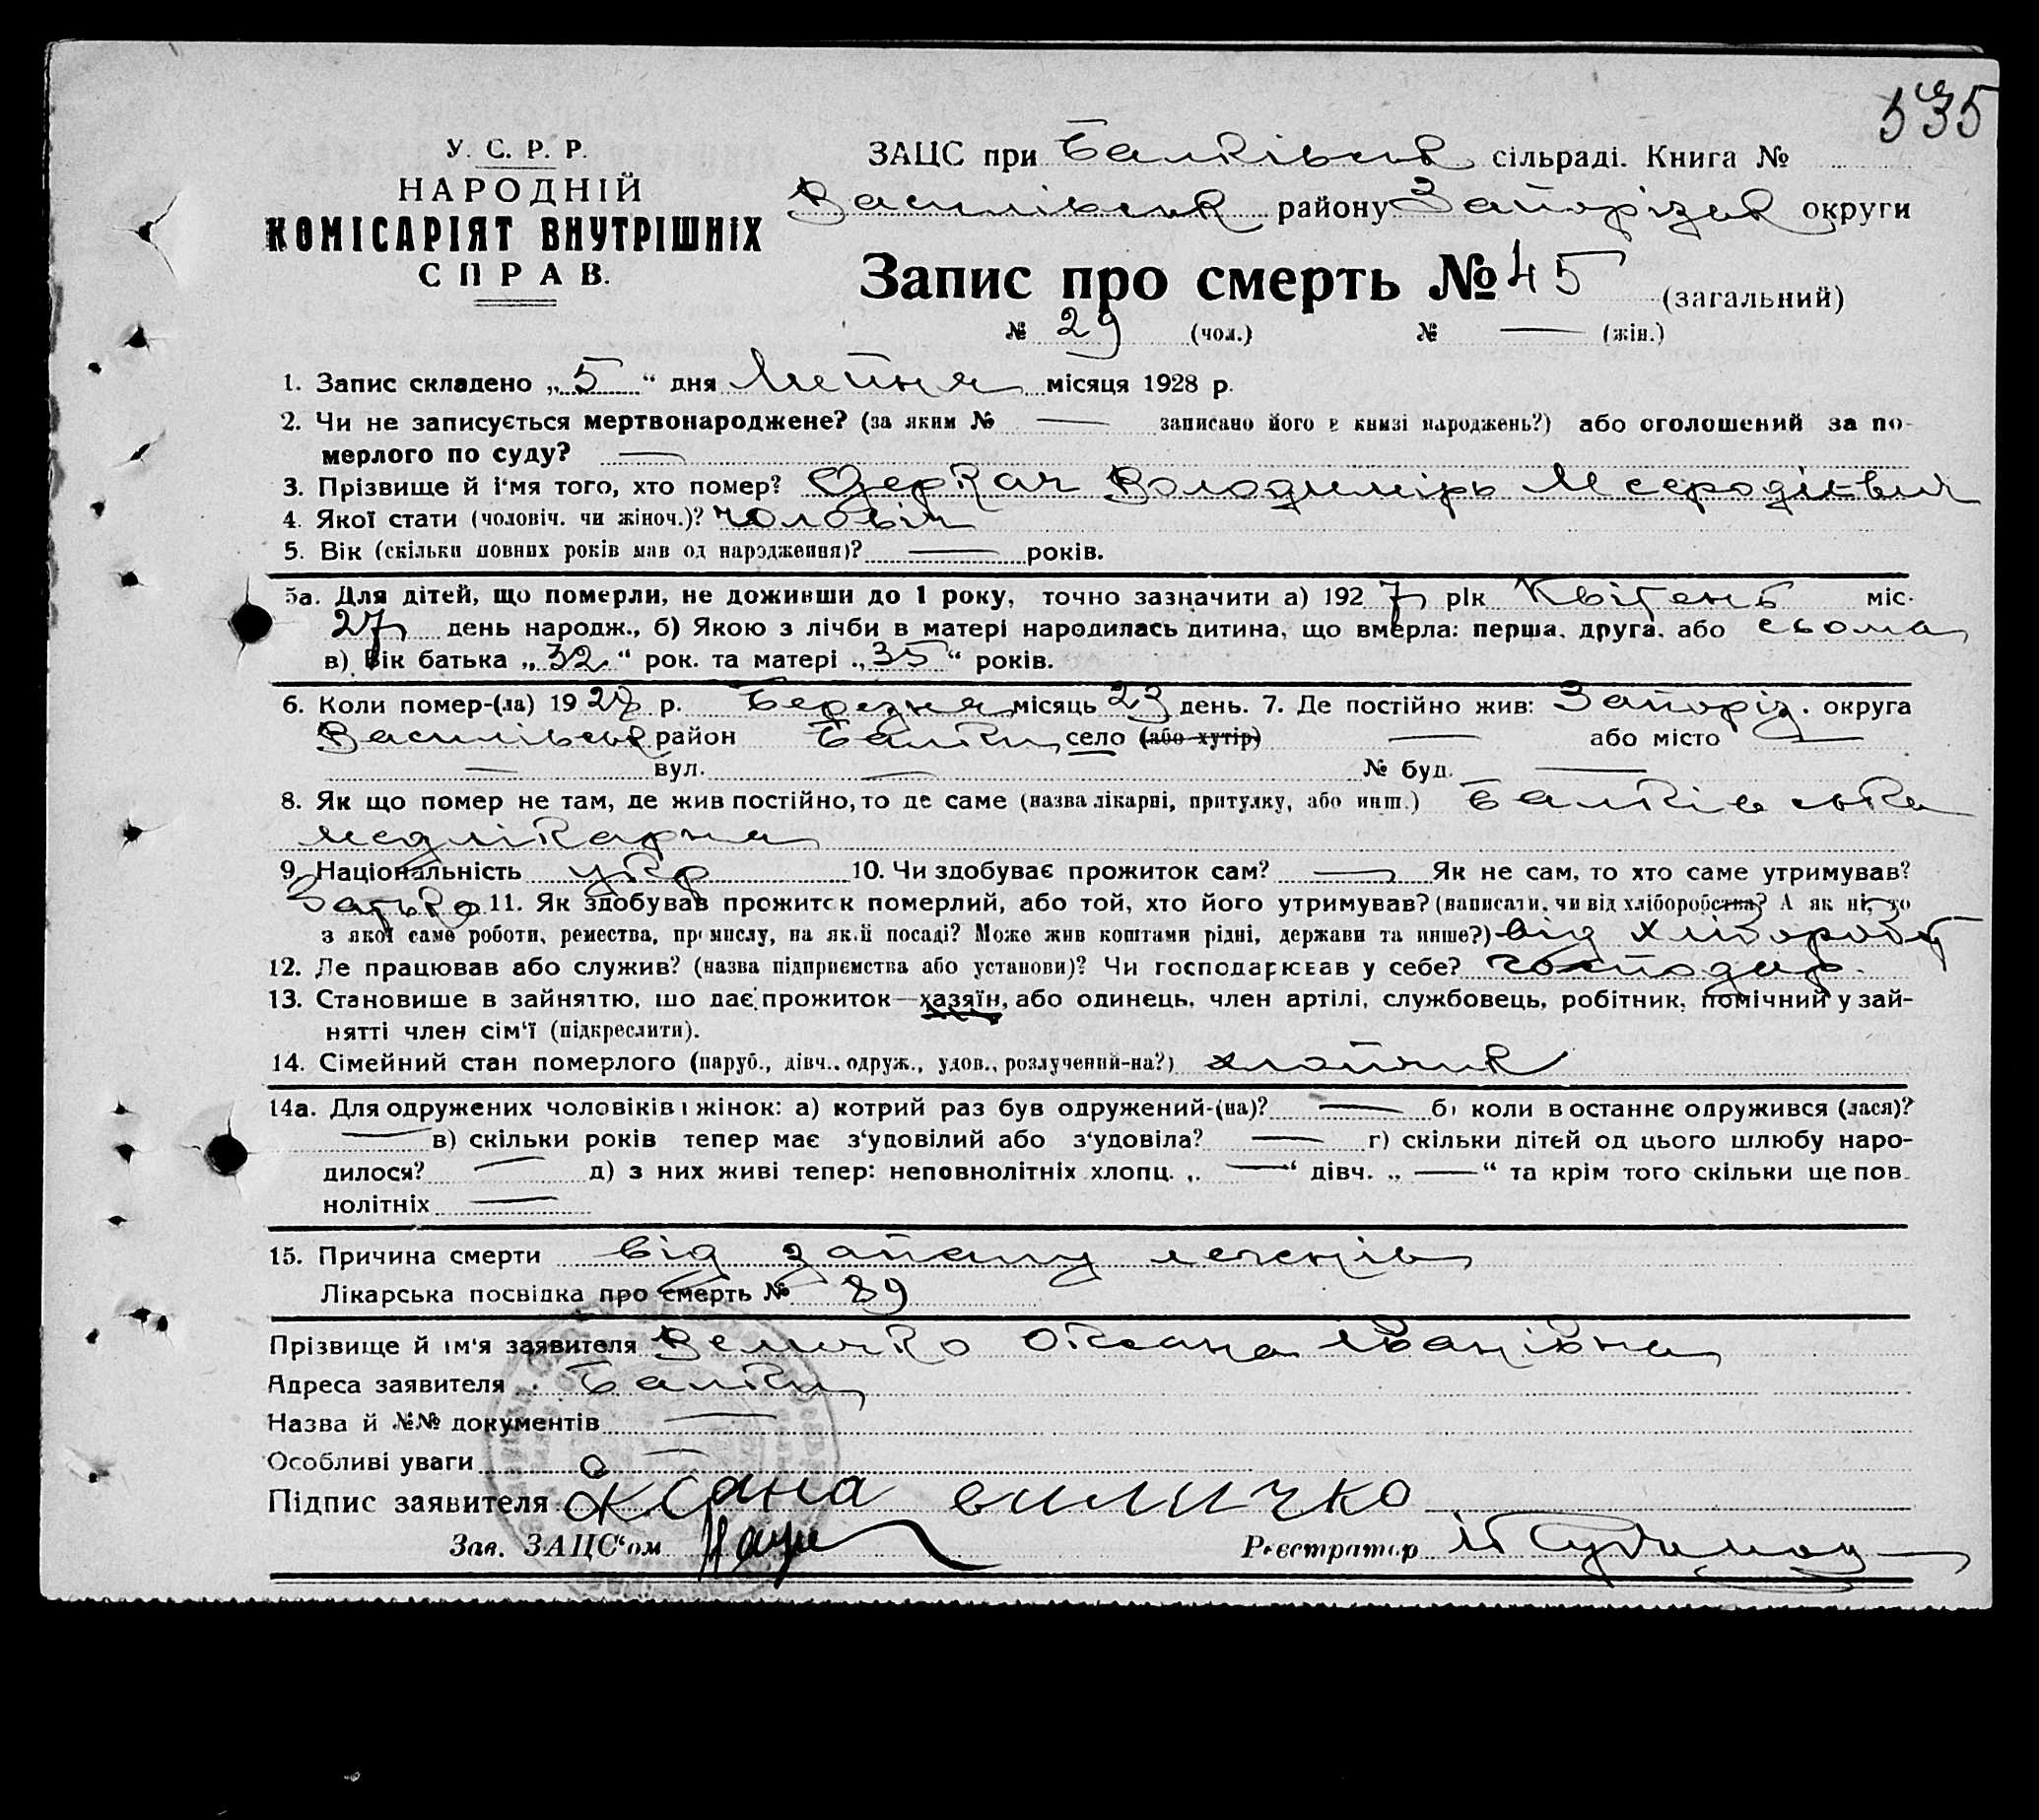 535
У. С. Р. Р.
НАРОДНІЙ
КОМІСАРІЯТ ВНУТРІШНІХ
СПРАВ.
ЗАЦС при Балківськ сільраді. Книга №
Василівськ району Запорізьк округи
Запис про смерть № 45 (загальний)
№ 29 (чол.) № — (жін.)
1. Запис складено „ 5 “ дня місяця 1928 р.
2. Чи не записується мертвонароджене? (за яким № — записано його в книзі народжень?) або оголошений за по-
мерлого по суду? —
3. Прізвище й і‘мя того, хто помер? Деркач Володимірь
4. Якої стати (чоловіч. чи жіноч.)? чоловіч
5. Вік (скільки повних років мав од народження)? — років.
5а. Для дітей, що померли, не доживши до 1 року, точно зазначити а) 1927 рік Квітень міс.
27 день народж., б) Якою з лічби в матері народилась дитина, що вмерла: перша, друга, або сьома
в) Вік батька „ 32 “ рок. та матері „ 35 “ років.
6. Коли помер-(ла) 19 р. Березня місяць 23 день. 7. Де постійно жив: Запоріз. округа
Василівськ район Балки село (або хутір) — або місто —
— вул. — № буд. —
8. Як що помер не там, де жив постійно, то де саме (назва лікарні, притулку, або инш.) Балківська
медлікарня
9. Національність укр 10. Чи здобуває прожиток сам? — Як не сам, то хто саме утримував?
Батько 11. Як здобував прожиток померлий, або той, хто його утримував? (написати, чи від хліборобства? А як ні, то
з якої саме роботи, ремества, промислу, на якій посаді? Може жив коштами рідні, держави та инше?) від хліборобст
12. Де працював або служив? (назва підприємства або установи)? Чи господарював у себе? господар.
13. Становище в зайняттю, що дає прожиток—хазяїн, або одинець, член артілі, службовець, робітник, помічний у зай-
нятті член сім‘ї (підкреслити).
14. Сімейний стан померлого (паруб., дівч., одруж., удов., розлучений-на?) хлопчик
14а. Для одружених чоловіків і жінок: а) котрий раз був одружений-(на)? — б) коли в останнє одружився (лася)?
— в) скільки років тепер має з‘удовілий або з‘удовіла? — г) скільки дітей од цього шлюбу наро-
дилося? — д) з них живі тепер: неповнолітніх хлопц. „ — “ дівч. „ — “ та крім того скільки ще пов-
нолітніх —
15. Причина смерти від запалу легенів
Лікарська посвідка про смерть № 89
Прізвище й ім‘я заявителя Величко Оксана Іванівна
Адреса заявителя Балки
Назва й №№ документів —
Особливі уваги —
Підпис заявителя Оксана виличко
Зав. ЗАЦС‘ом Реєстратор